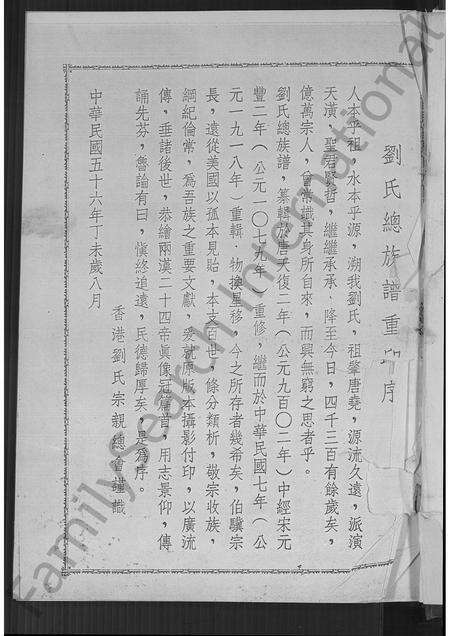 劉氏總族譜重印序
人本乎祖，水本乎源，溯我劉氏，祖肇唐堯，源流久遠，派演
天潢．聖君賢哲，繼繼承承、降至今日，四千三百有餘歲矣，
億萬宗人，曾常識其身所自來，而興無窮之思者乎。
劉氏總族譜，纂輯於唐天復二年（公元九百０二年）中經宋元
豐二年（公元一０七九年）重修，繼而於中華民國七年（公
元一九一八年）重輯．物換星移，今之所存者幾希矣，伯驥宗
長，遠從美國以孤本見貽，本支百世，條分類析，敬宗收族，
綱紀倫常，為吾族之重要文獻，爰就原版本攝影付印，以廣流
傳，垂諸後世，恭繪兩漢二十四帝真像冠篇首，用志景仰，傳
誦先芬，魯論有曰，慎終追遠，民德歸厚矣。是為序。
香港劉氏宗親總會謹識
中華民國五十六年丁未歲八月
FamilySearch International